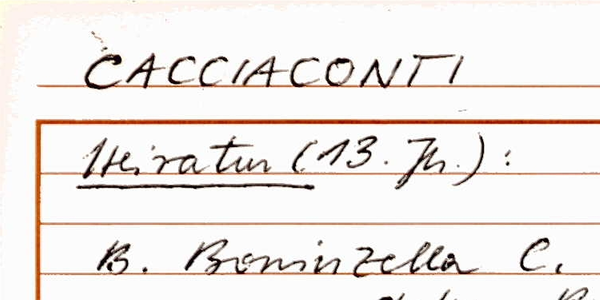 CACCIACONTI
Heiraten (13. Jh.):
B. Boninzella C.